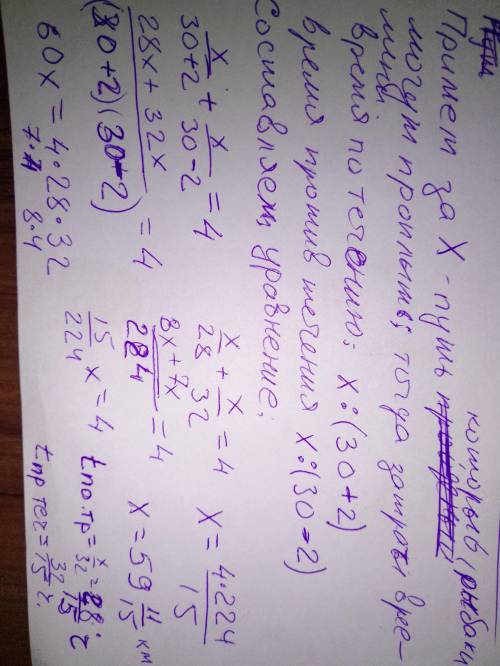 Примем за X - путь который рыбаки
могут проплыть, тогда затраты вре-
мени
время по течению: x:(30+2)
время против течения x:(30-2)
Составляем уравнение:
x/(30+2) + x/(30-2) = 4
(28x + 32x)/((30+2)(30-2)) = 4
60x = 4·28·32
7·4 8·4
x/28 + x/32 = 4
(8x + 7x)/224 = 4
15/224 x = 4
X = 4·224/15
X = 59 11/15 км
t по. тр = x/32 = 28/15 г
t пр теч = 32/15 г.